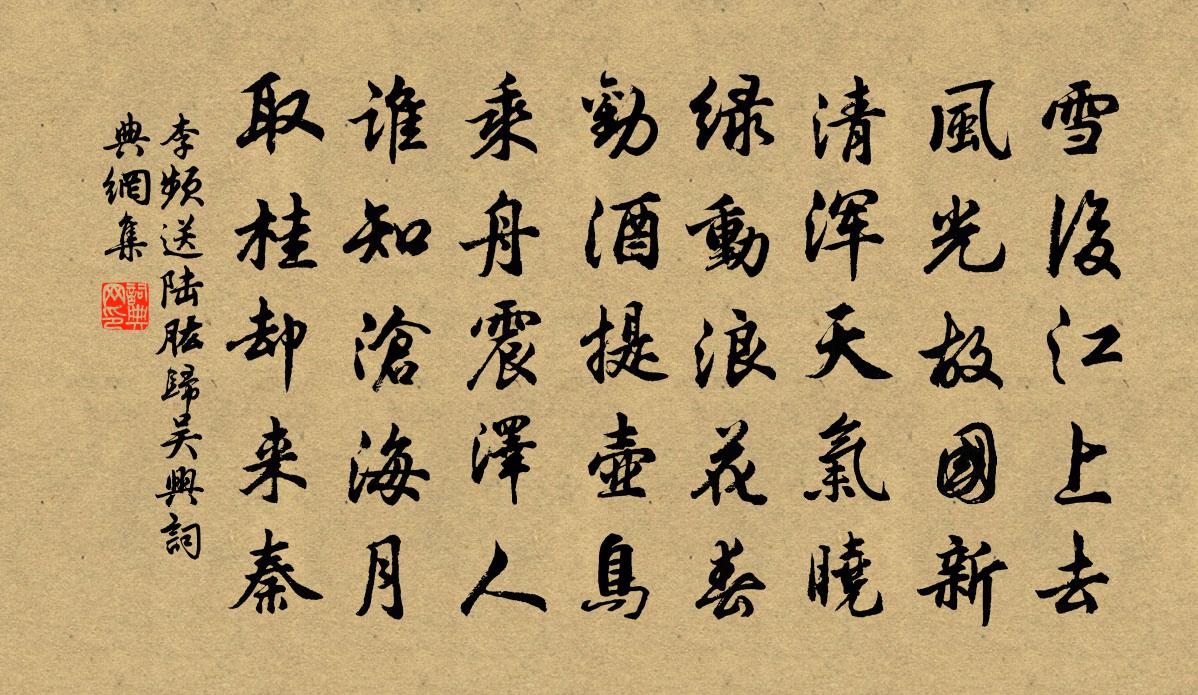 雪後江上去
風光故國新
清渾天氣曉
緑動浪花春
勸酒提壺鳥
乘舟震澤人
誰知滄海月
取桂却来秦
李頻送陆肱歸吴興詞
典網集
詞典
网印